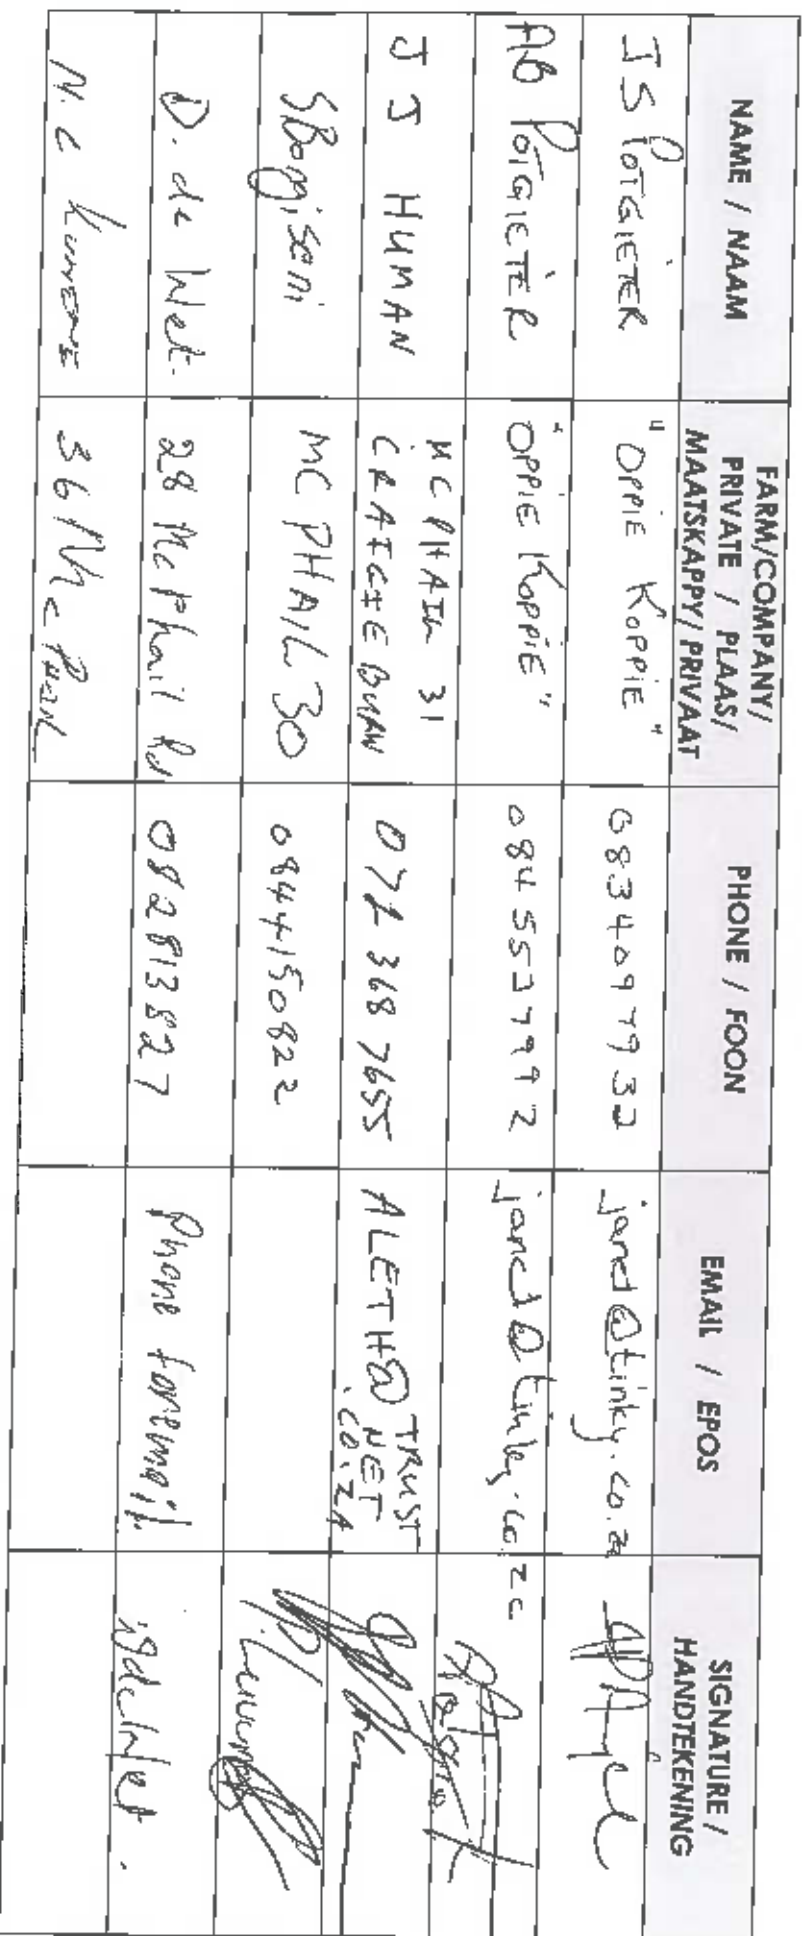 NAME / NAAM
FARM/COMPANY/
PRIVATE / PLAAS/
MAATSKAPPY/ PRIVAAT
PHONE / FOON
EMAIL / EPOS
SIGNATURE /
HANDTEKENING
J S POTGIETER
"OPPIE KOPPIE"
jand@tinky.co.za
AB POTGIETER
"OPPIE KOPPIE"
J J HUMAN
MCPHAIL 31
CRAIGIE BURN
368 7655
ALETH@TRUST
NET
.CO.ZA
SBongiseni
MC PHAIL 30
0844150822
D. de Wet.
28 McPhail Rd
082813827
Phone for email.
N.C Kunene
36 McPhail